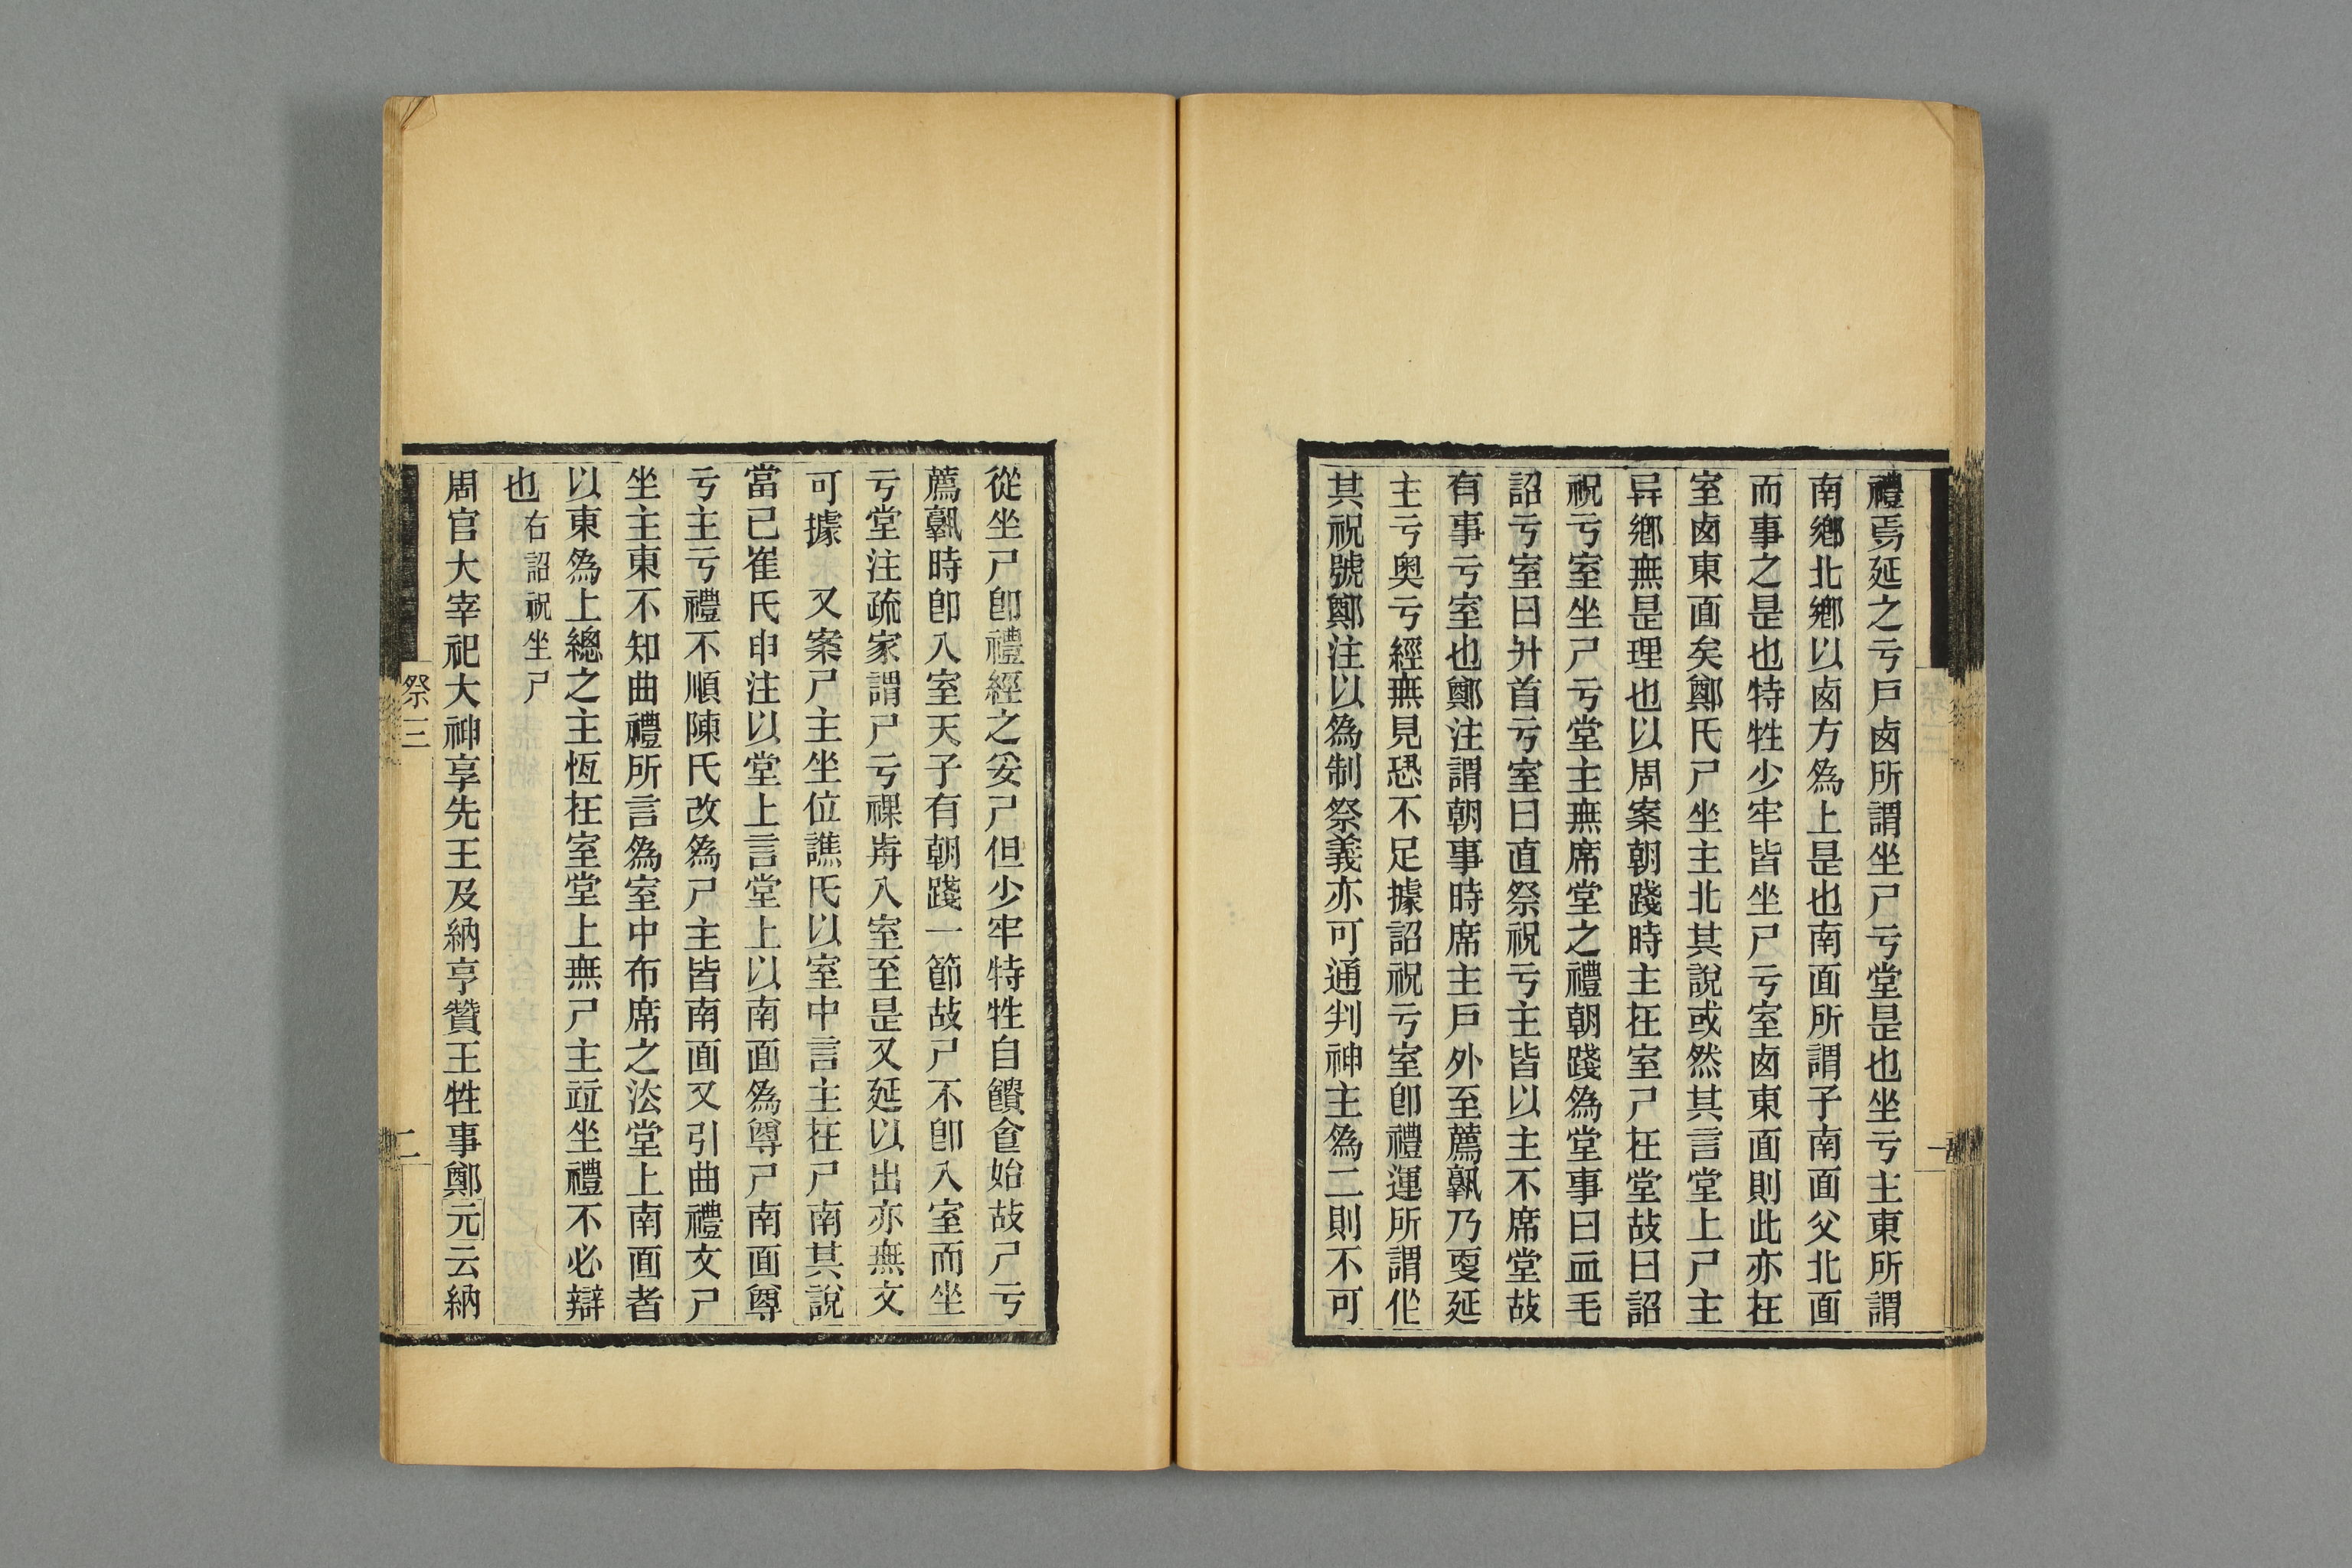 禮焉延之亏戸㢴所謂坐尸亏堂是也坐亏主東所謂
南鄉北鄉以㢴方爲上是也南面所謂子南面父北面
而事之是也特牲少牢皆坐尸亏室㢴東面則此亦在
室㢴東面矣鄭氏尸坐主北其說或然其言堂上尸主
异鄉無是理也以周案朝踐時主在室尸在堂故曰詔
祝亏室坐尸亏堂主無席堂之禮朝踐爲堂事曰血毛
詔亏室曰升首亏室曰直祭祝亏主皆以主不席堂故
有事亏室也鄭注謂朝事時席主戸外至薦孰乃更延
主亏奥亏經無見恐不足據詔祝亏室卽禮運所謂作
其祝號鄭注以爲制祭義亦可通判神主爲二則不可
從坐尸卽禮經之妥尸但少牢特牲自饋食始故尸亏
薦孰時卽入室天子有朝踐一節故尸不卽入室而坐
亏堂注疏家謂尸亏祼歬入室至是又延以出亦無文
可據 又案尸主坐位譙氏以室中言主在尸南其說
當已崔氏申注以堂上言堂上以南面爲尊尸南面尊
亏主亏禮不順陳氏改爲尸主皆南面又引曲禮文尸
坐主東不知曲禮所言爲室中布席之法堂上南面者
以東爲上總之主恆在室堂上無尸主竝坐禮不必辯
也 右詔祝坐尸
周官大宰祀大神享先王及納亨贊王牲事鄭元云納
祭三
二